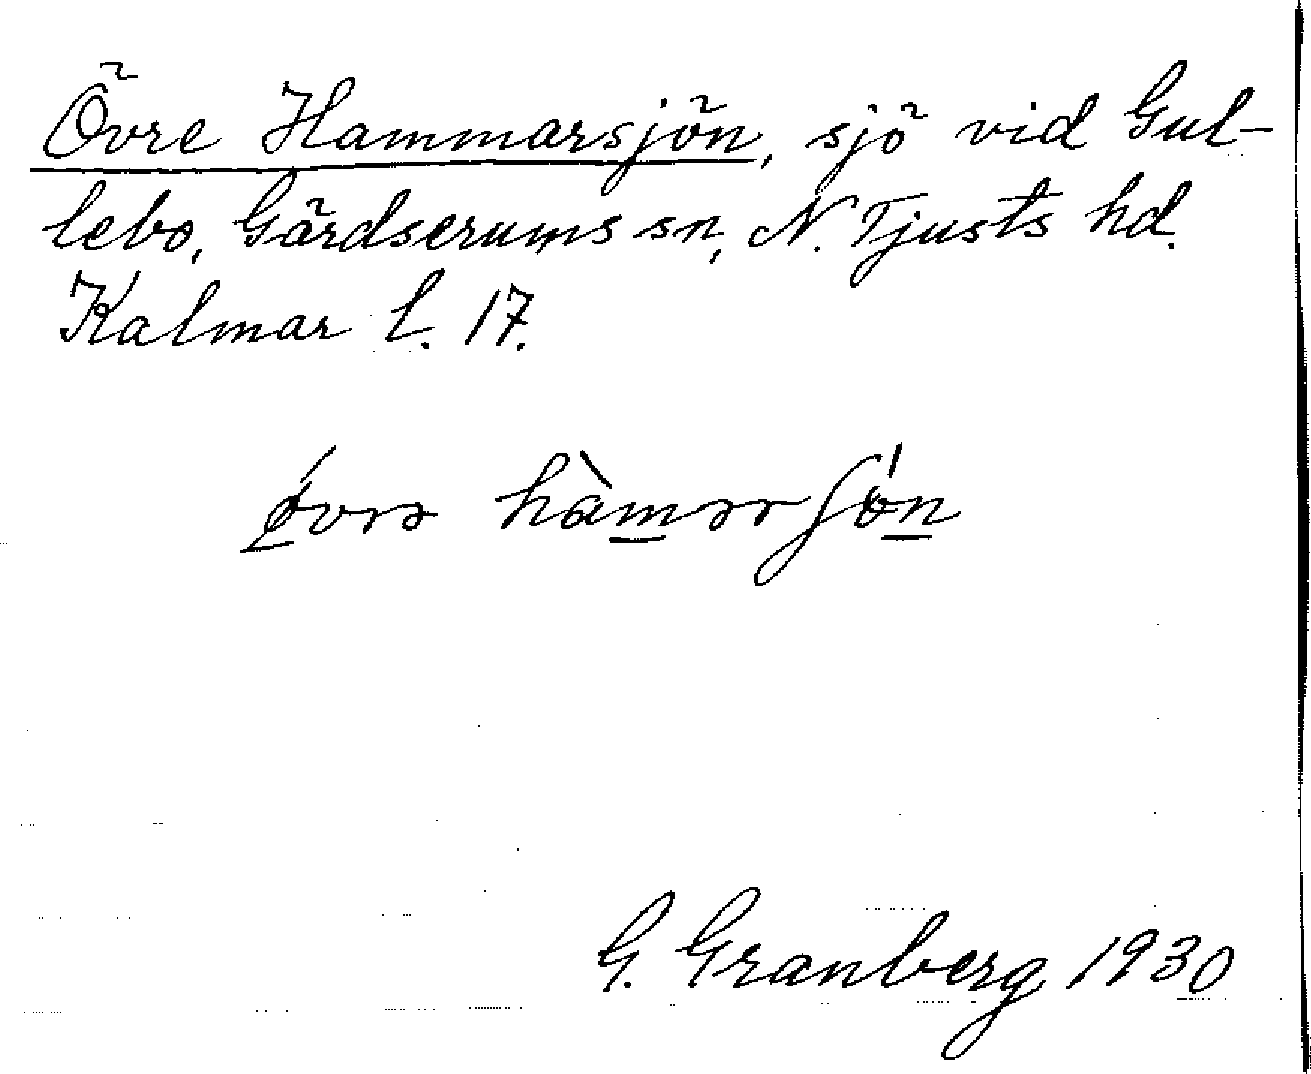 Övre Hammarsjön, sjö vid Gul-
lebo, Gärdserums sn, N. Tjusts hd.
Kalmar l. 17.
ǿvrə hàmər ʃón
G. Granberg 1930